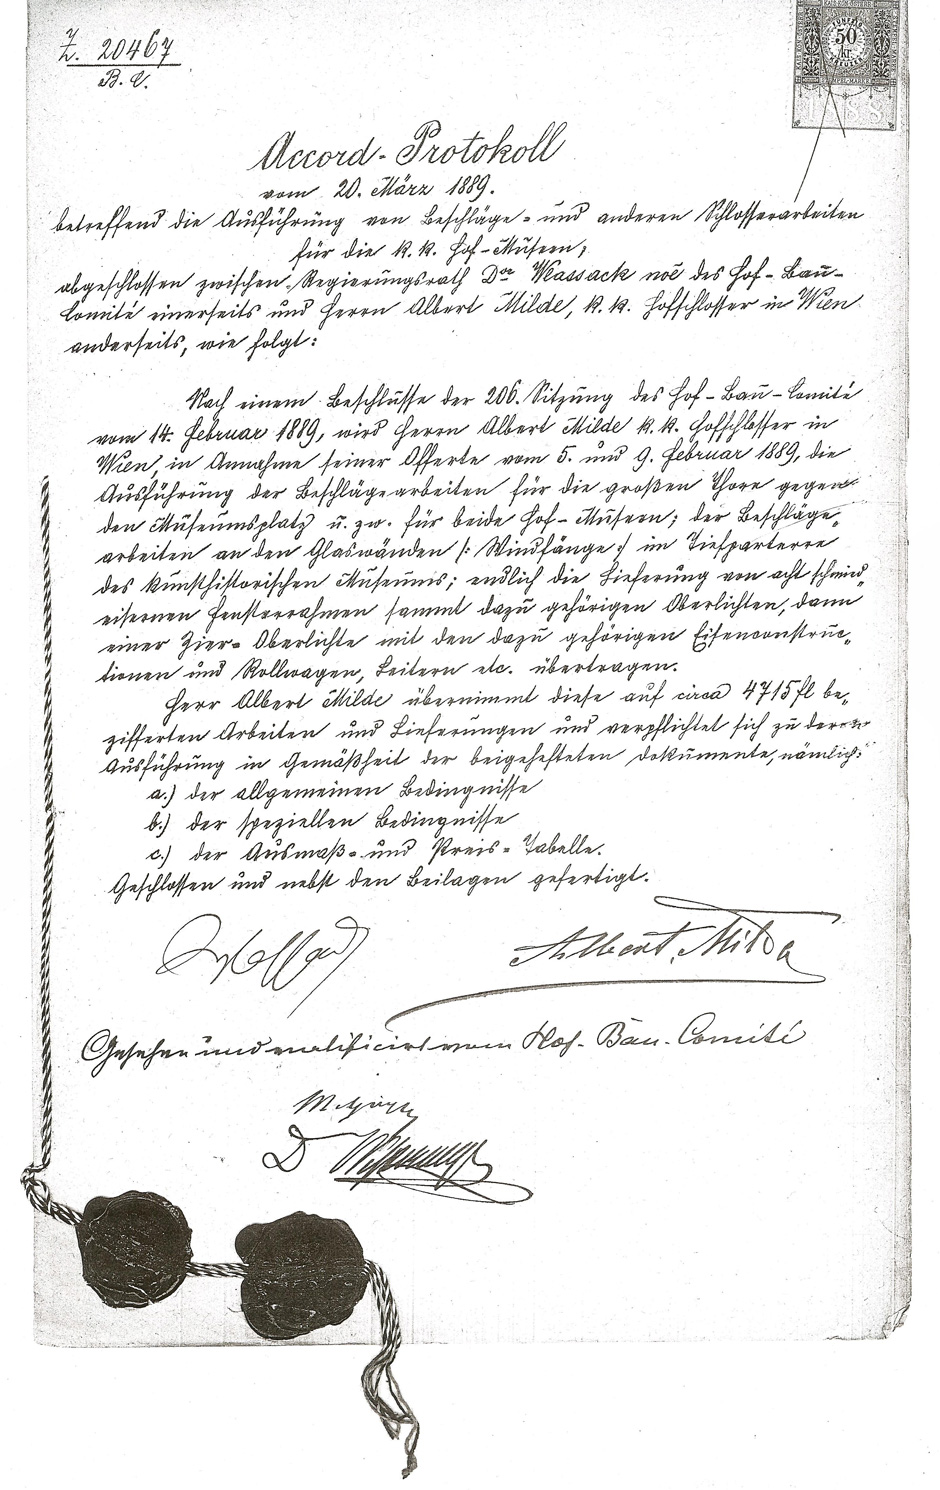 Z. 20467
B. C.
50
kr
1888
Accord-Protokoll
vom 20. März 1889.
betreffend die Ausführung von Beschläge- und anderen Schlosserarbeiten
für die k. k. Hof-Museen;
abgeschlossen zwischen Regierungsrath Dr. Wassack noē des Hof-Bau-
Comité einerseits und Herrn Albert Milde, k. k. Hofschlosser in Wien
anderseits, wie folgt:
Nach einem Beschlusse der 206. Sitzung des Hof-Bau-Comité
vom 14. Februar 1889, wird Herrn Albert Milde k. k. Hofschlosser in
Wien, in Annahme seiner Offerte vom 5. und 9. Februar 1889, die
Ausführung der Beschlägearbeiten für die großen Thore gegen
den Museumsplatz u. zw. für beide Hof-Museen; der Beschläge„
arbeiten an den Glaswänden /: Windfänge :/ im Tiefparterre
des kunsthistorischen Museums; endlich die Lieferung von acht schmied„
eisernen Fensterrahmen sammt dazu gehörigen Oberlichten, dann
einer Zier-Oberlichte mit den dazu gehörigen Eisenconstruc„
tionen und Rollwagen, Leitern etc. übertragen.
Herr Albert Milde übernimmt diese auf circa 4715 fl be„
zifferten Arbeiten und Lieferungen und verpflichtet sich zu deren
Ausführung in Gemäßheit der beigehefteten Dokumente, nämlich:
a.) der allgemeinen Bedingnisse
b.) der speziellen Bedingnisse
c.) der Ausmaß- und Preis-Tabelle.
Geschlossen und nebst den Beilagen gefertigt.
Albert Milde
Gesehen und ratificirt vom Hof-Bau-Comité
D